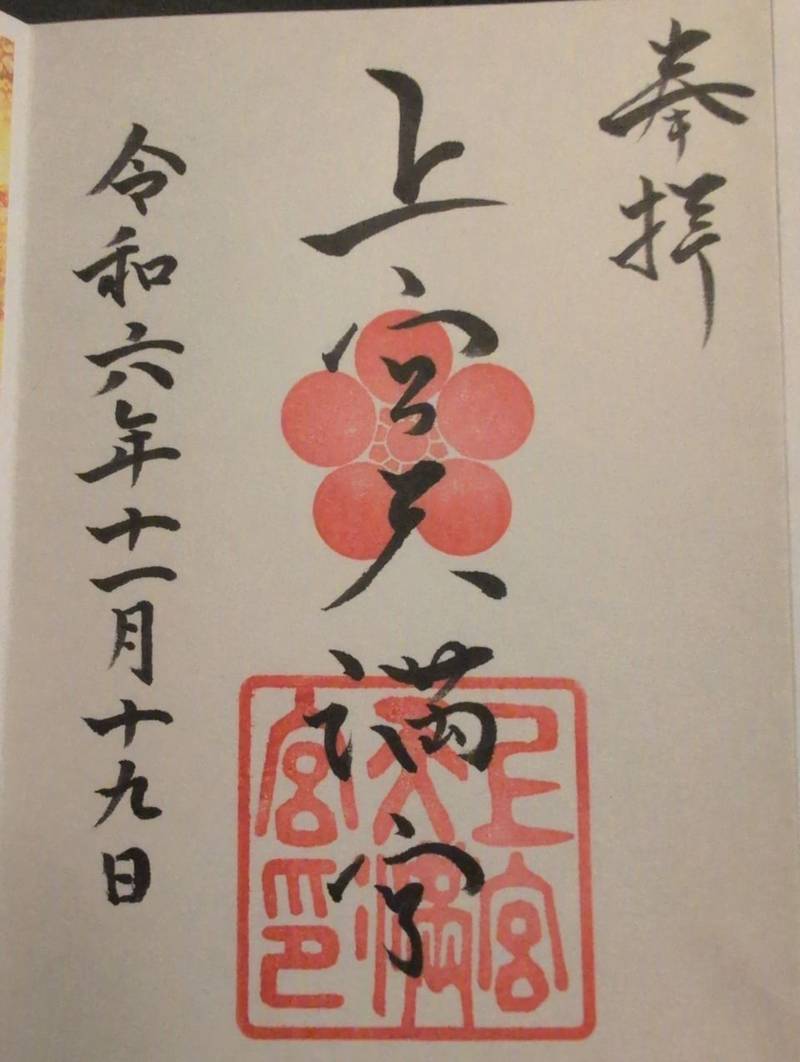 奉拝
上宮天満宮
令和六年十一月十九日
上宮
天満
宮印